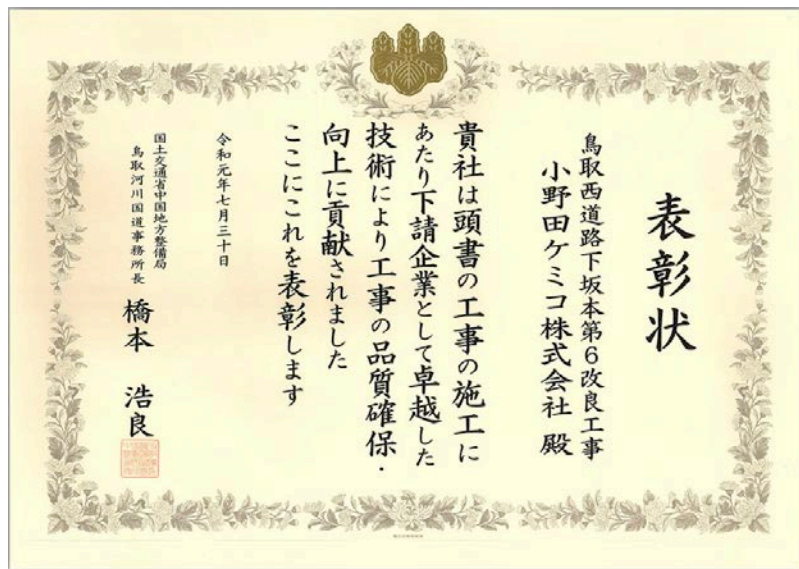 表彰状
鳥取西道路下坂本第6改良工事
小野田ケミコ株式会社 殿
貴社は頭書の工事の施工に
あたり下請企業として卓越した
技術により工事の品質確保・
向上に貢献されました
ここにこれを表彰します
令和元年七月三十日
国土交通省中国地方整備局
鳥取河川国道事務所長 橋本 浩良